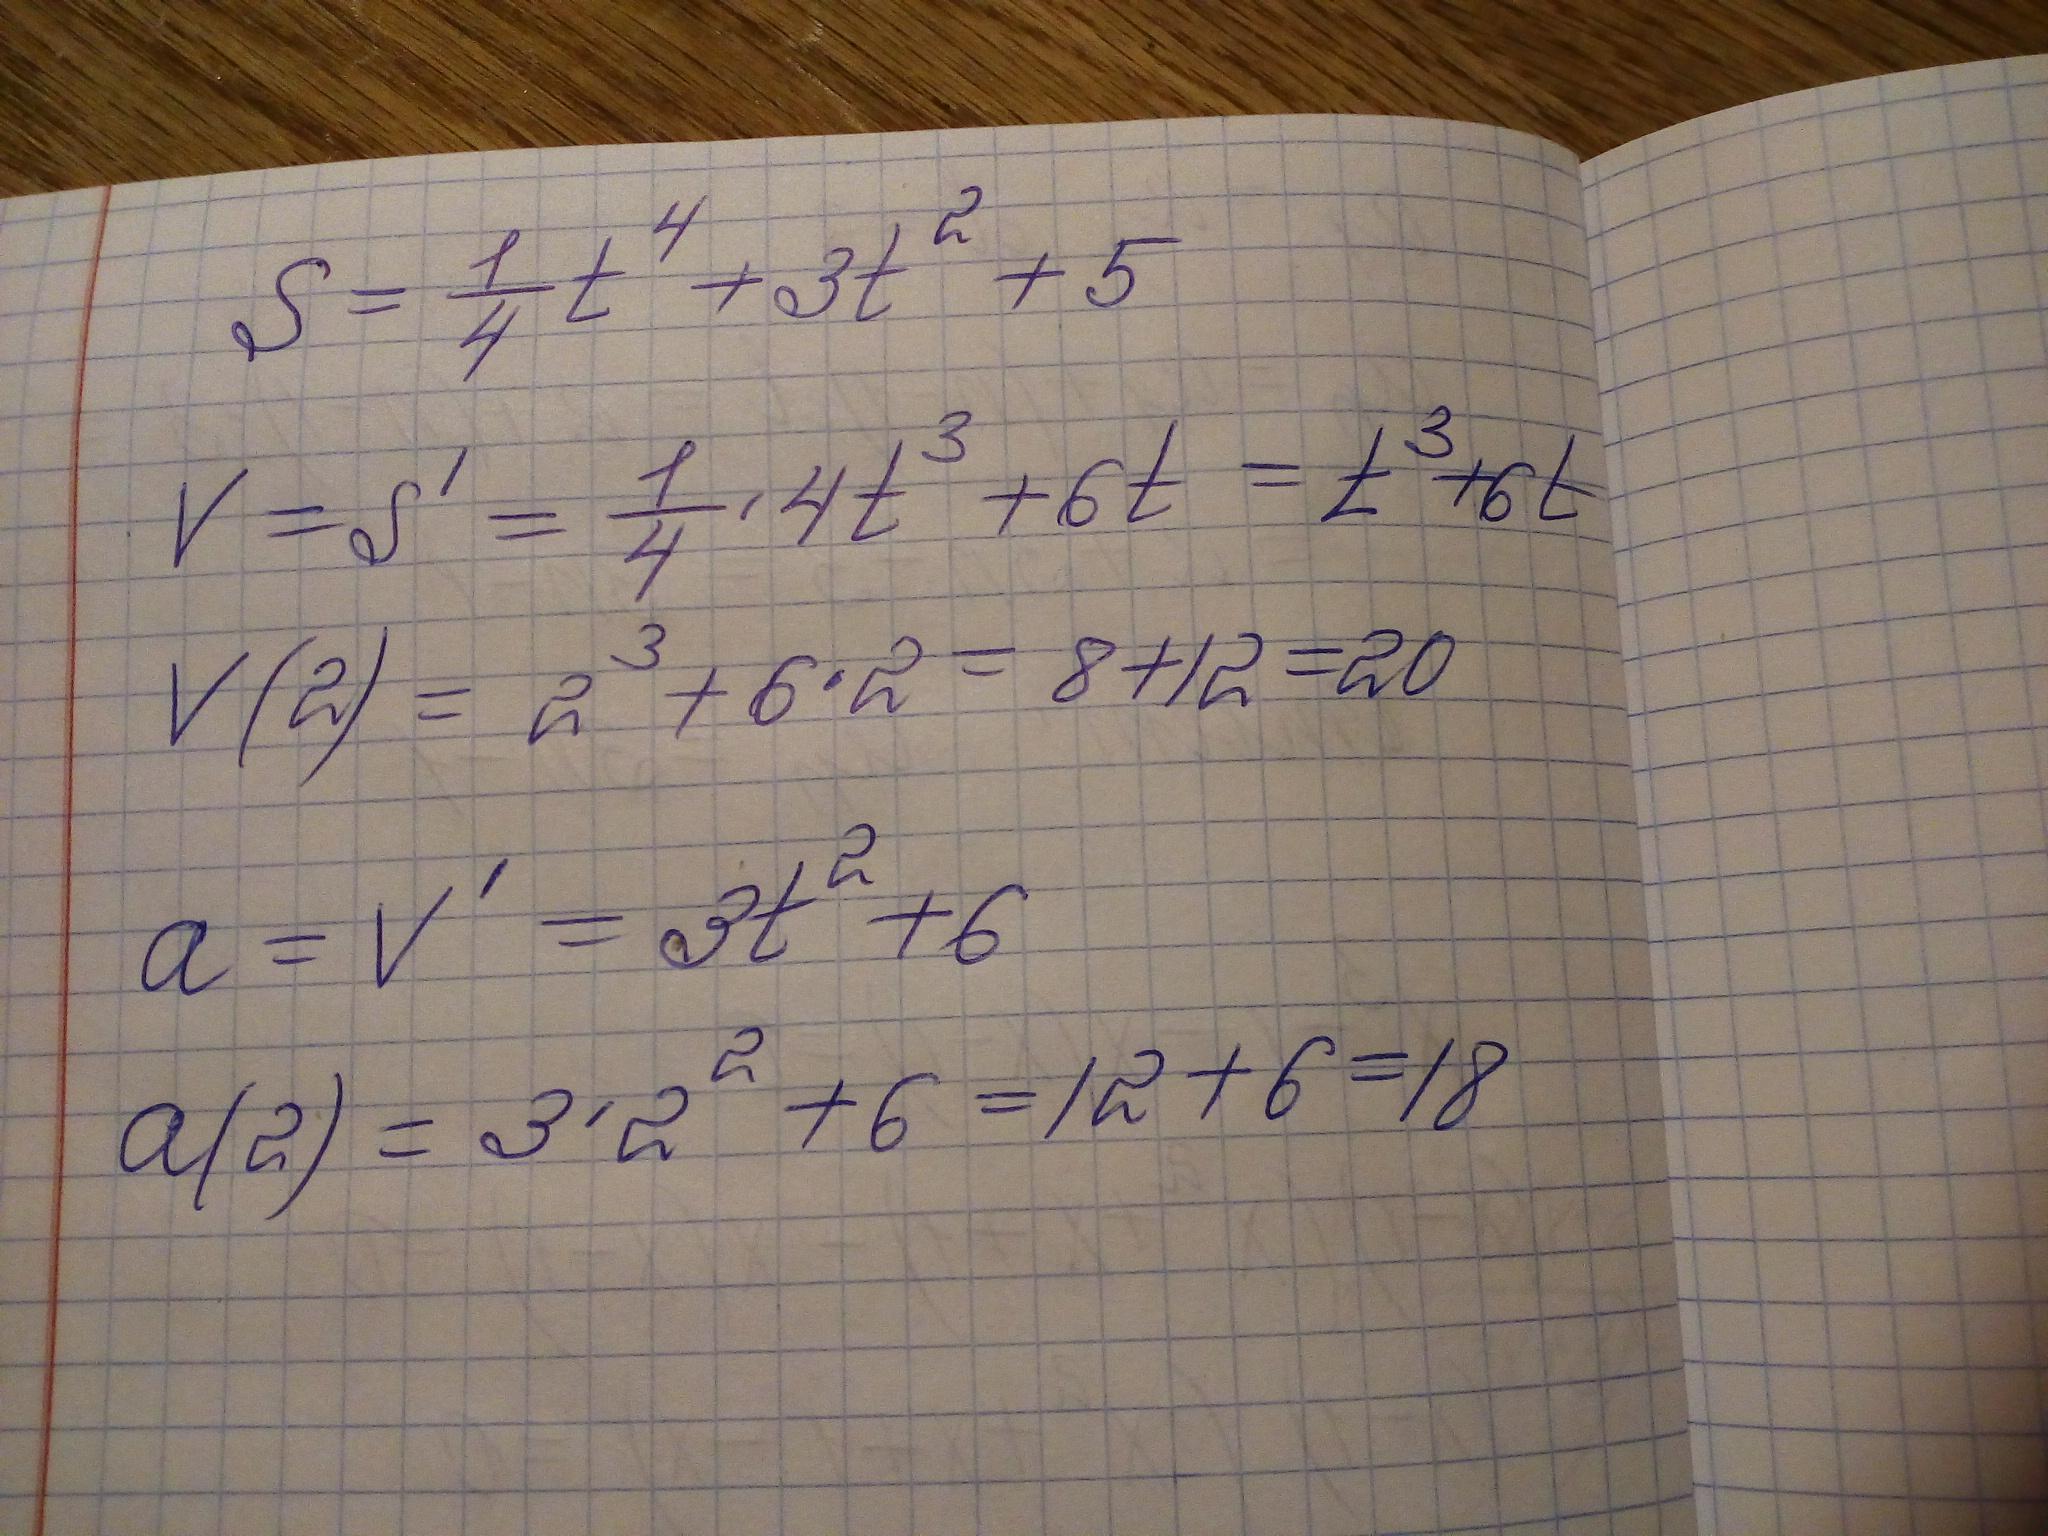 S = 1/4 t^4 + 3t^2 + 5
V = S' = 1/4 · 4t^3 + 6t = t^3 + 6t
V(2) = 2^3 + 6·2 = 8 + 12 = 20
a = V' = 3t^2 + 6
a(2) = 3·2^2 + 6 = 12 + 6 = 18